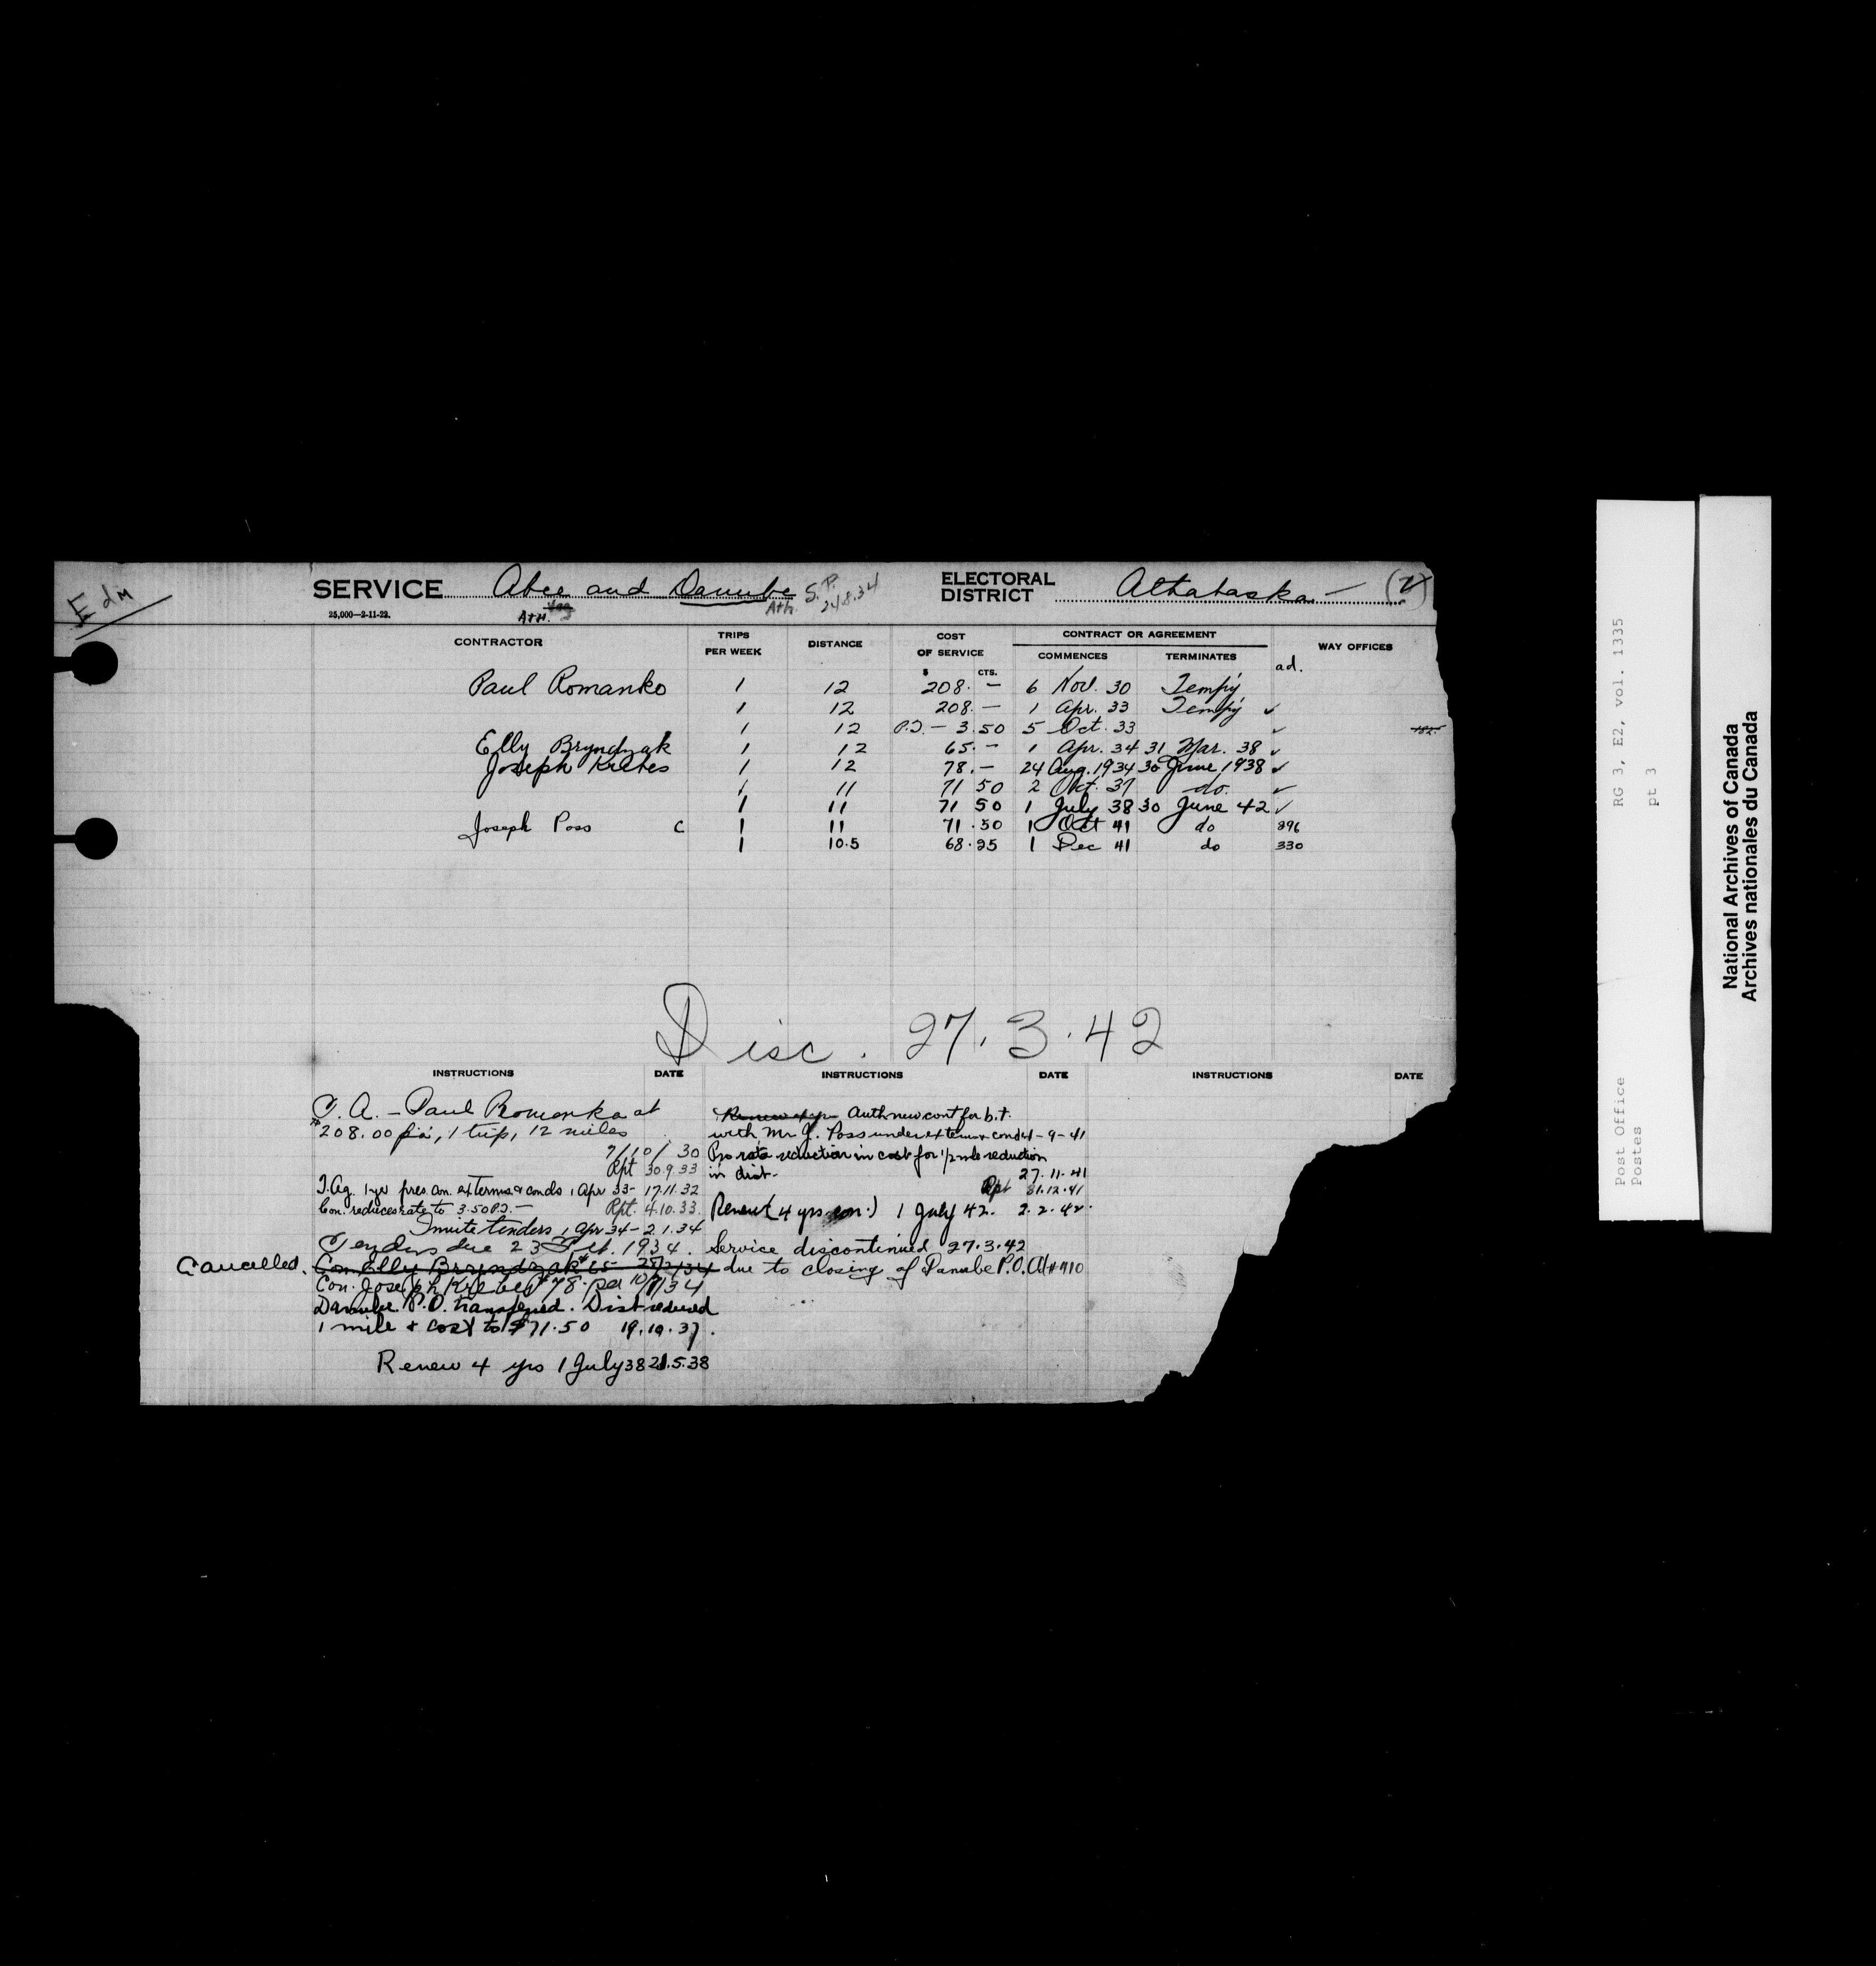 Edm
SERVICE Abee and Danube S.P. 24.8.34 ELECTORAL DISTRICT Athabaska - (2)
25,000—2-11-22. Ath. Ath.
CONTRACTOR TRIPS PER WEEK DISTANCE COST OF SERVICE CONTRACT OR AGREEMENT WAY OFFICES
COMMENCES TERMINATES
$ CTS. ad.
Paul Romanko 1 12 208. — 6 Nov. 30 Tempy
1 12 208. — 1 Apr. 33 Tempy ✓
1 12 P.T. — 3.50 5 Oct. 33 ✓
Elly Bryndzak 1 12 65. — 1 Apr. 34 31 Mar. 38 ✓
Joseph Krebes 1 12 78. — 24 Aug. 1934 30 June 1938 ✓
1 11 71 50 2 Oct. 37 do. ✓
1 11 71 50 1 July 38 30 June 42 ✓
Joseph Poss C 1 11 71.50 1 Oct 41 do 296
1 10.5 68.25 1 Dec 41 do 330
Disc. 27.3.42
INSTRUCTIONS DATE INSTRUCTIONS DATE INSTRUCTIONS DATE
T.A. — Paul Romanko at
$208.00 p.a., 1 trip, 12 miles
7/10/30
Rpt 30.9.33
T.Ag. 1 yr pres. con. ex terms & conds 1 Apr 33 - 17.11.32
Con. reduces rate to 3.50 P.T. — Rpt. 4.10.33
Invite tenders 1 Apr 34 - 2.1.34
Tenders due 23 Feb. 1934.
Cancelled. Con. Elly Bryndzak $65 - 28/2/34
Con. Joseph Krebes $78. pa 10/7/34
Danube P.O. transferred. Dist reduced
1 mile & cost to $71.50 19.10.37.
Renew 4 yrs 1 July 38 21.5.38
Auth new cont for b.t.
with Mr J. Poss under ex terms & conds - 9 - 41
Pro rata reduction in cost for 1/2 mile reduction
in dist - 27.11.41
Rpt 31.12.41
Renew (4 yrs con.) 1 July 42. 2.2.42.
Service discontinued 27.3.42
due to closing of Danube P.O. A/#910
RG 3, E2, vol. 1335
pt 3
Post Office
Postes
National Archives of Canada
Archives nationales du Canada